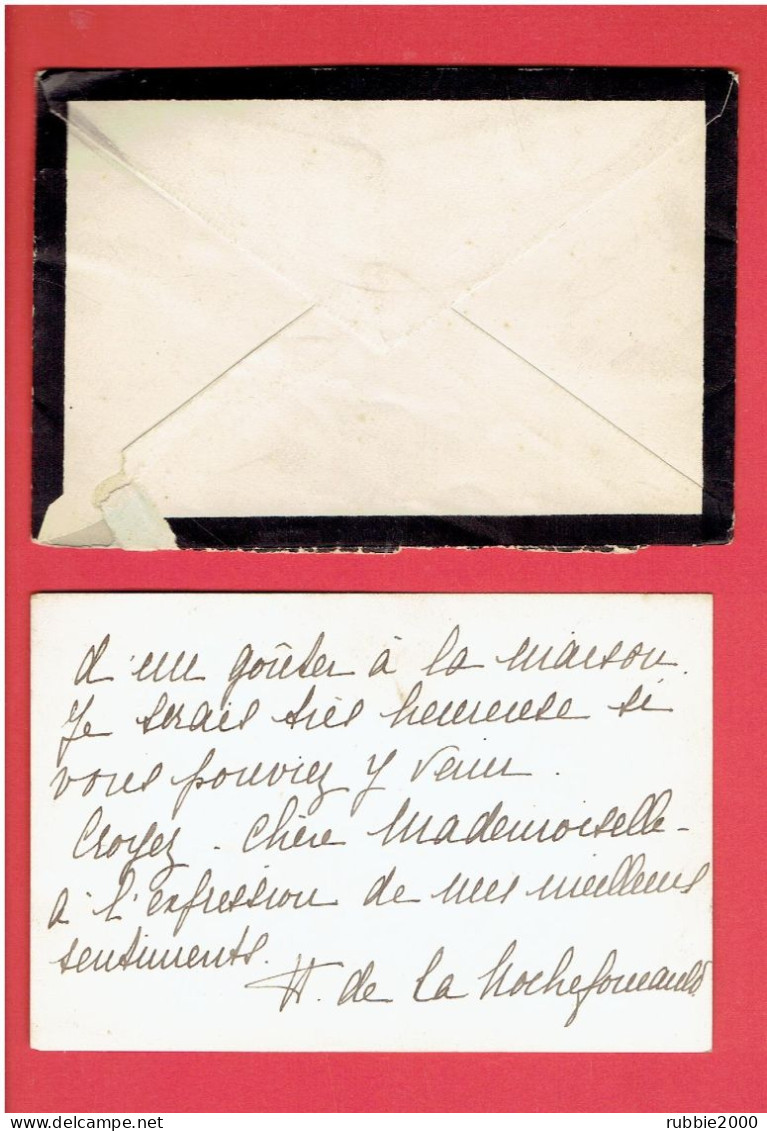 d'un goûter à la maison.
Je serais très heureuse si
vous pouviez y venir.
Croyez - chère Mademoiselle -
à l'expression de mes meilleurs
sentiments.
H. de La Rochefoucauld
rubbie2000